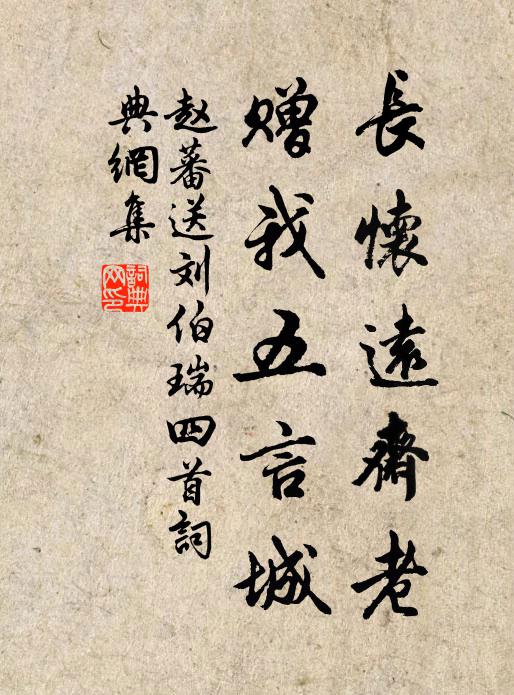 長懷遠齋老
贈我五言城
赵蕃送刘伯瑞四首詞
典網集
詞典
网印